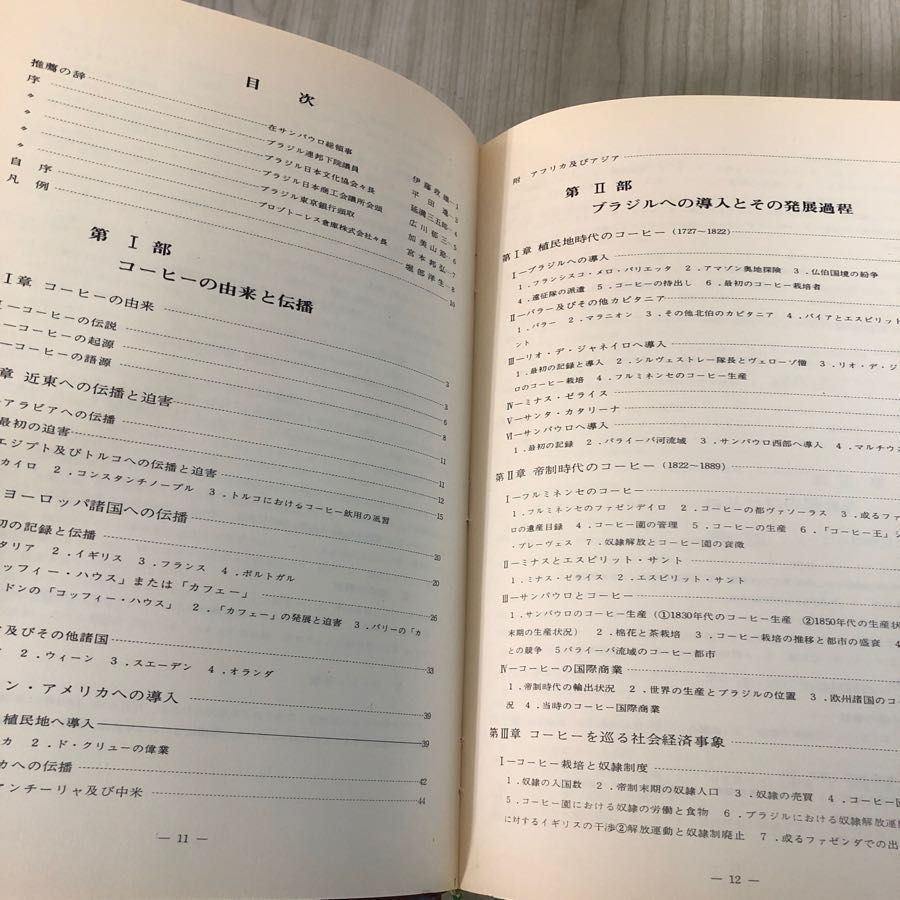 目次
推薦の辞
在サンパウロ総領事
伊藤政雄…1
序
ブラジル連邦下院議員
平田進…3
々
ブラジル日本文化協会々長
延満三五郎…4
々
ブラジル日本商工会議所会頭
広川郁三…5
々
ブラジル東京銀行頭取
加美山節…6
々
プロゾトーレス倉庫株式会社々長
宮本邦弘…7
自序
堀部洋生…8
凡例
10
第Ⅰ部
コーヒーの由来と伝播
Ⅰ章 コーヒーの由来
3
ーコーヒーの伝説
3
ーコーヒーの起源
6
ーコーヒーの語源
8
章 近東への伝播と迫害
アラビアへの伝播
11
最初の迫害
11
エジプト及びトルコへの伝播と迫害
12
カイロ 2．コンスタンチノーブル 3．トルコにおけるコーヒー飲用の風習
15
ヨーロッパ諸国への伝播
20
初の記録と伝播
20
タリア 2．イギリス 3．フランス 4．ポルトガル
ッフィー・ハウス」または「カフェー」
26
ドンの「コッフィー・ハウス」 2．「カフェー」の発展と迫害 3．パリーの「カ
及びその他諸国
33
2．ウィーン 3．スエーデン 4．オランダ
ン・アメリカへの導入
39
植民地へ導入
39
カ 2．ド・クリューの偉業
カへの伝播
42
アンチーリャ及び中米
44
― 11 ―
附 アフリカ及びアジア
第Ⅱ部
ブラジルへの導入とその発展過程
第Ⅰ章 植民地時代のコーヒー（1727～1822）
Ⅰーブラジルへの導入
1．フランシスコ・メロ・パリエッタ 2．アマゾン奥地探険 3．仏伯国境の紛争
4．遠征隊の派遣 5．コーヒーの持出し 6．最初のコーヒー栽培者
Ⅱーパラー及びその他カピタニア
1．パラー 2．マラニオン 3．その他北伯のカピタニア 4．バイアとエスピリット
ント
Ⅲーリオ・デ・ジャネイロへ導入
1．最初の記録と導入 2．シルヴェストレー隊長とヴェローゾ僧 3．リオ・デ・ジ
ロのコーヒー栽培 4．フルミネンセのコーヒー生産
Ⅳーミナス・ゼライス
Ⅴーサンタ・カタリーナ
Ⅵーサンパウロへ導入
1．最初の記録 2．パライーバ河流域 3．サンパウロ西部へ導入 4．マルチウ
第Ⅱ章 帝制時代のコーヒー（1822～1889）
Ⅰーフルミネンセのコーヒー
1．フルミネンセのファゼンデイロ 2．コーヒーの都ヴァソーラス 3．或るファ
ロの遺産目録 4．コーヒー園の管理 5．コーヒーの生産 6．「コーヒー王」ジ
・ブレーヴェス 7．奴隷解放とコーヒー園の衰微
Ⅱーミナスとエスピリット・サント
1．ミナス・ゼライス 2．エスピリット・サント
Ⅲーサンパウロとコーヒー
1．サンパウロのコーヒー生産（①1830年代のコーヒー生産 ②1850年代の生産状
末期の生産状況） 2．棉花と茶栽培 3．コーヒー栽培の推移と都市の盛衰 4
との競争 5パライーバ流域のコーヒー都市
Ⅳーコーヒーの国際商業
1．帝制時代の輸出状況 2．世界の生産とブラジルの位置 3．欧州諸国のコー
況 4．当時のコーヒー国際商業
第Ⅲ章 コーヒーを巡る社会経済事象
Ⅰーコーヒー栽培と奴隷制度
1．奴隷の入国数 2．帝制末期の奴隷人口 3．奴隷の売買 4．コーヒー園
5．コーヒー園における奴隷の労働と食物 6．ブラジルにおける奴隷解放運動
に対するイギリスの干渉②解放運動と奴隷制廃止 7．或るファゼンダでの出
― 12 ―